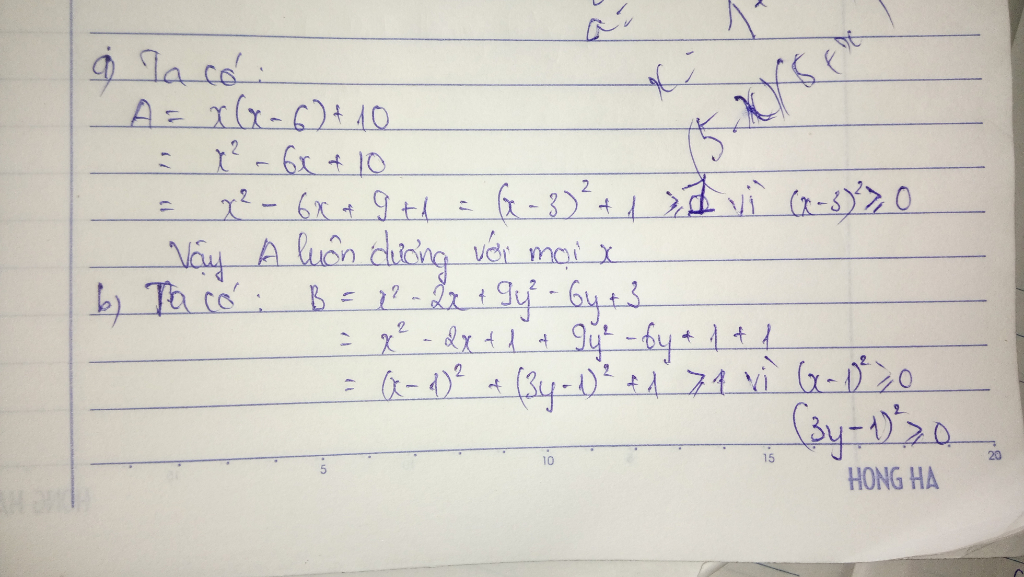 a) Ta có :
A = x(x-6) + 10
= x² - 6x + 10
= x² - 6x + 9 + 1 = (x-3)² + 1 ⩾ 1 vì (x-3)² ⩾ 0
Vậy A luôn dương với mọi x
b) Ta có : B = x² - 2x + 9y² - 6y + 3
= x² - 2x + 1 + 9y² - 6y + 1 + 1
= (x-1)² + (3y-1)² + 1 ⩾ 1 vì (x-1)² ⩾ 0
(3y-1)² ⩾ 0
5 10 15 20
HONG HA